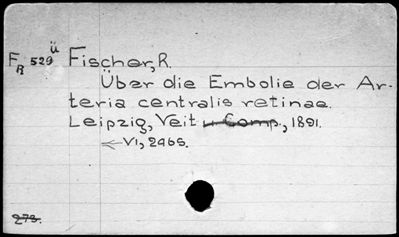 F_R 529 ü Fischer, R.
Über die Embolie der Ar-
teria centralis retinae.
Leipzig, Veit u Comp., 1891.
VI, 296S.
273.